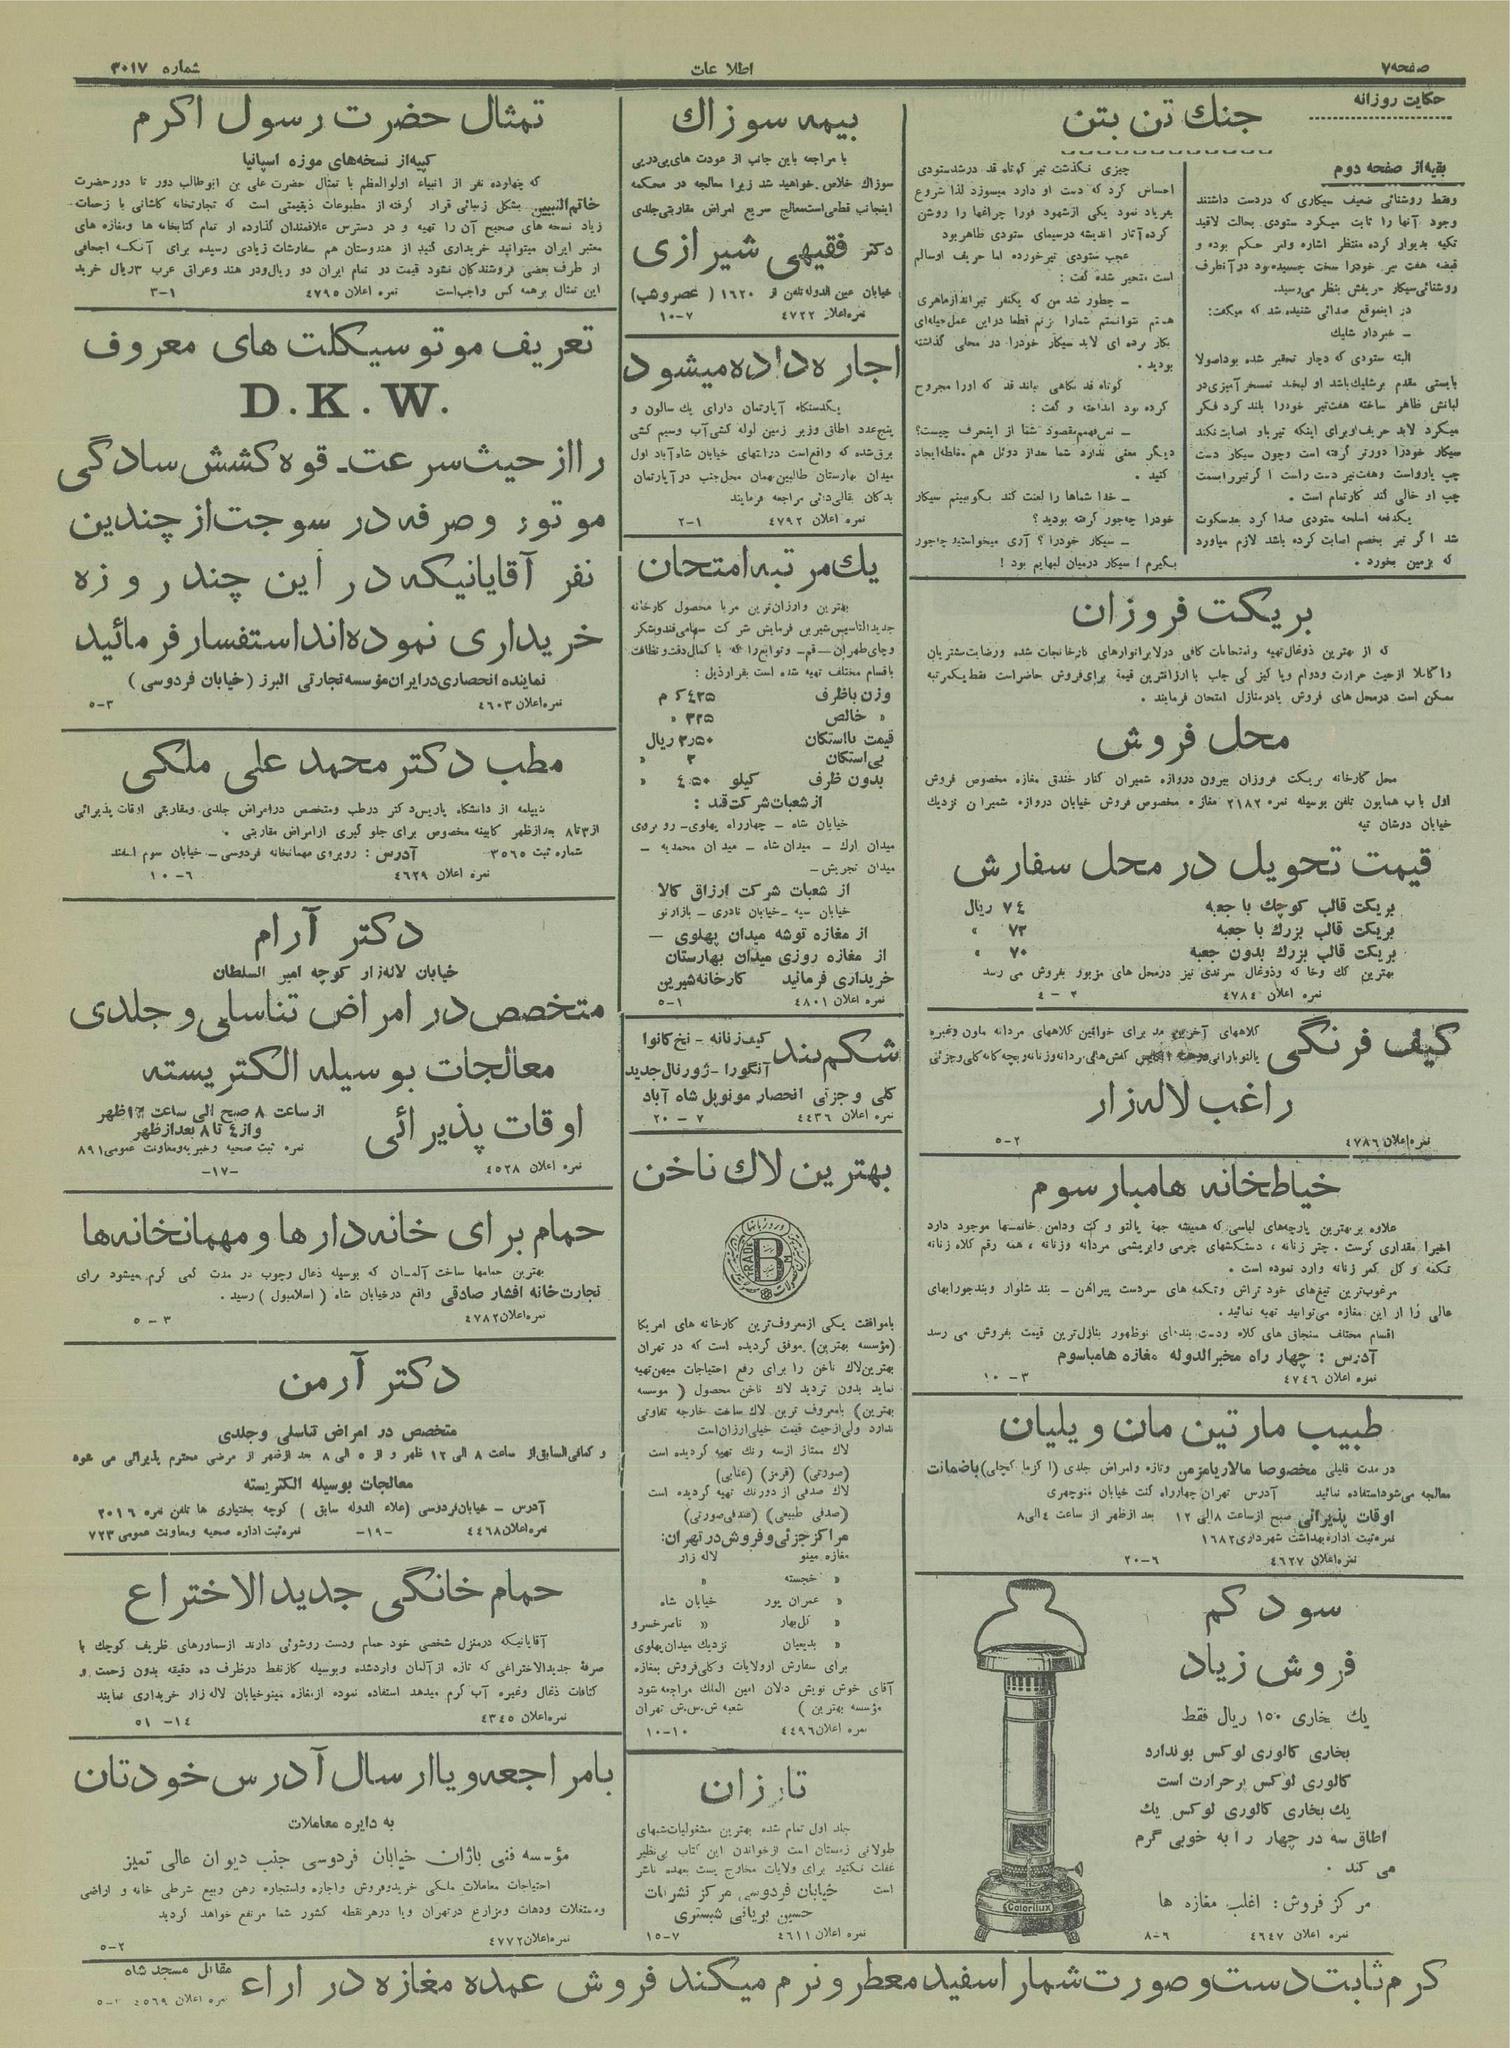 صفحه ۷
اطلاعات
شماره ۳۰۱۷
حکایت روزانه
جنك تن بتن
بقیه از صفحه دوم
وفقط روشنائی ضعیف سیکاری که دردست داشتند
وجود آنها را ثابت میکرد ستودی بحالت لاقید
تکیه بدیوار کرده منتظر اشاره وامر حکم بوده و
قبضه هفت تیر خودرا سخت چسبیده بود در آنطرف
روشنائی سیکار حریفش بنظر می رسید.
در اینموقع صدائی شنیده شد که میگفت:
ـ خبردار شليك
البته ستودی که دچار تحقیر شده بود اصولا
بایستی مقدم برشلیك باشد او لبخند تمسخر آمیزی در
لبانش ظاهر ساخته هفت تیر خودرا بلند کرد فکر
میکرد لابد حریف او برای اینکه تیر باو اصابت نکند
سیکار خودرا دورتر گرفته است وچون سیکار دست
چپ یارواست وهفت تیر دست راست اگر تیررا بسمت
چپ او خالی کند کارتمام است .
یکدفعه اسلحه ستودی صدا کرد بعدسکوت
شد اگر تیر بخصم اصابت کرده باشد لازم میاورد
که بزمین بخورد .
چیزی نگذشت تیر کوتاه قد درشد ستودی
احساس کرد که دست او دارد میسوزد لذا شروع
بفریاد نمود یکی ازشهود فورا چراغها را روشن
کرده آثار اندیشه درسیمای ستودی ظاهر بود
عجب ستودی تیر خورده اما حریف اوسالم
است متحیر شده گفت :
ـ چطور شد من که یکنفر تیر انداز ماهری
هستم نتوانستم شمارا بزنم قطعا در این عمل حیله ای
بکار برده ای لابد سیکار خودرا در محلی گذاشته
بودید .
کوتاه قد نگاهی بباند قد که اورا مجروح
کرده بود انداخته و گفت :
ـ نمی فهمم مقصود شما از اینحرف چیست؟
دیگر معنی ندارد شما بعداز دوئل هم مغلطه ایجاد
کنید .
ـ خدا شماها را لعنت کند بگو ببینم سیکار
خودرا چه جور گرفته بودید ؟
ـ سیکار خودرا ؟ آری میخواستید چه جور
بگیرم ! سیکار درمیان لبهایم بود !
بریکت فروزان
که از بهترین ذوغال تهیه وامتحانات کافی درلابراتوارهای کارخانجات شده ورضایت مشتریان
را کاملا ازحیث حرارت ودوام وپا کیز گی جلب با ارزانترین قیمة برای فروش حاضراست فقط یکمرتبه
ممکن است درمحل های فروش یادرمنازل امتحان فرمایند .
محل فروش
محل کارخانه بریکت فروزان بیرون دروازه شمیران کنار خندق مغازه مخصوص فروش
اول باب همایون تلفن بوسیله نمره ۲۱۸۲ مغازه مخصوص فروش خیابان دروازه شمیران نزدیك
خیابان دوشان تپه
قیمت تحویل در محل سفارش
بریکت قالب کوچك با جعبه ۷۴ ریال
بریکت قالب بزرك با جعبه ۷۳ »
بریکت قالب بزرك بدون جعبه ۷۰ »
بهترین کك وخاکه وذوغال سرندی نیز درمحل های مزبور بفروش می رسد
نمره اعلان ۴۷۸۴ ۲ ـ ۴
کیف فرنگی
کلاههای آخرین مد برای خوانین کلاههای مردانه ملون وغیره
راغب لاله زار
نمره اعلان ۴۷۸۶ ۲ـ۵
خیاطخانه هامبارسوم
علاوه بر بهترین پارچه های لباسی که همیشه جهة پالتو و کت ودامن خانمها موجود دارد
اخیرا مقداری کرست . چتر زنانه ، دستکشهای چرمی وابریشمی مردانه وزنانه ، همه رقم کلاه زنانه
تکمه و گل کمر زنانه وارد نموده است .
مرغوب ترین تیغهای خود تراش وتکمه های سردست پیراهن ـ بند شلوار وبندجورابهای
عالی را از این مغازه می توانید تهیه نمائید.
اقسام مختلف سنجاق های کلاه ودست بندهای نوظهور بنازل ترین قیمت بفروش می رسد
آدرس : چهار راه مخبرالدوله مغازه هامباسوم
نمره اعلان ۴۷۴۶ ۳ـ ۱۰
طبیب مارتین مان ویلیان
در مدت قلیلی مخصوصا مالاریامزمن وتازه وامراض جلدی (اکزما کچلی) باضمانت
معالجه می شود استفاده نمائید آدرس تهران چهارراه کنت خیابان منوچهری
اوقات پذیرائی صبح ازساعت ۸الی ۱۲ بعد ازظهر از ساعت ۴الی۸
نمره ثبت اداره بهداشت شهرداری ۱۶۸۲
نمره اعلان ۴۶۲۷ ۶ـ۲۰
سود کم
فروش زیاد
يك بخاری ۱۵۰ ریال فقط
بخاری کالوری لوکس بوندارد
کالوری لوکس پرحرارت است
يك بخاری کالوری لوکس يك
اطاق سه در چهار را به خوبی گرم
می کند .
مرکز فروش: اغلب مغازه ها
نمره اعلان ۴۶۴۷ ۶ـ۸
Calorilux
بیمه سوزاك
با مراجعه باین جانب از عودت های پی در پی
سوزاك خلاص خواهید شد زیرا معالجه در محکمه
اینجانب قطعی است معالج سریع امراض مقاربتی جلدی
دکتر فقیهی شیرازی
خیابان عین الدوله تلفن از ۱۶۲۰ (عصروشب)
نمره اعلان ۴۷۲۲ ۷ـ۱۰
اجاره داده میشود
یکدستگاه آپارتمان دارای يك سالون و
پنج عدد اطاق وزیر زمین لوله کشی آب وسیم کشی
برق شده که واقع است درانتهای خیابان شاه آباد اول
میدان بهارستان طالبین بهمان محل جنب در آپارتمان
بدکان بقالی دائی مراجعه فرمایند
نمره اعلان ۴۷۹۲ ۱ـ۲
يك مرتبه امتحان
بهترین وارزان ترین مربا محصول کارخانه
جدیدالتاسیس شیرین فرمایش شرکت سهامی قندوشکر
وچای طهران ـ قم ـ وتوابع را که با کمال دقت ونظافت
باقسام مختلف تهیه شده است بقرار ذیل :
وزن باظرف ۴۳۵ گرم
» خالص ۳۲۵ »
قیمت بااستکان ۳٫۵۰ ریال
بی استکان ۳ »
بدون ظرف کیلو ۴٫۵۰ »
از شعبات شرکت قند :
خیابان شاه ـ چهارراه پهلوی ـ روبروی
میدان ارك ـ میدان شاه ـ میدان محمدیه ـ
میدان تجریش ـ
از شعبات شرکت ارزاق کالا
خیابان سپه ـ خیابان نادری ـ بازار نو
از مغازه توشه میدان پهلوی ـ
از مغازه روزی میدان بهارستان
خریداری فرمائید کارخانه شیرین
نمره اعلان ۴۸۰۱ ۱ـ۵
شکم بند کیف زنانه ـ نخ کانوا
آنگورا ـ ژورنال جدید
کلی و جزئی انحصار مونوپل شاه آباد
نمره اعلان ۴۴۳۶ ۷ ـ ۲۰
بهترین لاك ناخن
TRADE
B
باموافقت یکی ازمعروف ترین کارخانه های امریکا
(مؤسسه بهترین) موفق گردیده است که در تهران
بهترین لاك ناخن را برای رفع احتیاجات میهن تهیه
نماید بدون تردید لاك ناخن محصول ( موسسه
بهترین) بامعروف ترین لاك ساخت خارجه تفاوتی
ندارد ولی ازحیث قیمت خیلی ارزان است
لاك ممتاز ازسه رنك تهیه گردیده است
(صورتی) (قرمز) (عنابی)
لاك صدفی از دورنك تهیه گردیده است
(صدفی طبیعی) (صدفی صورتی)
مراکز جزئی وفروش در تهران:
مغازه مینو لاله زار
» خجسته »
» عمران پور خیابان شاه
» گل بهار » ناصر خسرو
» بدیعیان نزديك میدان پهلوی
برای سفارش ازولایات وکلی فروش بمغازه
آقای خوش نویس دالان امین الملك مراجعه شود
مؤسسه بهترین ) شعبه ش.س.ش تهران
نمره اعلان ۴۴۹۶ ۱۰ـ۱۰
تارزان
جلد اول تمام شده بهترین مشغولیات شبهای
طولانی زمستان است ازخواندن این کتاب بی نظیر
غفلت نکنید برای ولایات مخارج پست بعهده ناشر
است خیابان فردوسی مرکز نشریات
حسین بریانی شبستری
نمره اعلان ۴۶۱۱ ۷ـ۱۵
تمثال حضرت رسول اکرم
کپیه از نسخه های موزه اسپانیا
که چهارده نفر از انبیاء اولوالعظم با تمثال حضرت علی بن ابوطالب دور تا دورحضرت
خاتم النبیین بشکل زیبائی قرار گرفته از مطبوعات ذیقیمتی است که تجارتخانه کاشانی با زحمات
زیاد نسخه های صحیح آن را تهیه و در دسترس علاقمندان گذارده از تمام کتابخانه ها ومغازه های
معتبر ایران میتوانید خریداری کنید از هندوستان هم سفارشات زیادی رسیده برای آنکه اجحافی
از طرف بعضی فروشندکان نشود قیمت در تمام ایران دو ریال ودر هند وعراق عرب ۳ریال خرید
این تمثال برهمه کس واجب است نمره اعلان ۴۷۹۵ ۱ـ۳
تعریف موتوسیکلت های معروف
D.K.W.
رااز حیث سرعت ـ قوه کشش سادگی
موتور وصرفه در سوخت از چندین
نفر آقایانیکه در این چند روزه
خریداری نموده انداستفسار فرمائید
نماینده انحصاری درایران مؤسسه تجارتی البرز (خیابان فردوسی)
نمره اعلان ۴۶۰۳ ۳ـ۵
مطب دکتر محمد علی ملکی
دیپلمه از دانشگاه پاریس دکتر درطب ومتخصص درامراض جلدی ومقاربتی اوقات پذیرائی
از ۳ تا ۸ بعداز ظهر کابینه مخصوص برای جلو گیری از امراض مقاربتی .
شماره ثبت ۳۵۶۵ آدرس : روبروی مهمانخانه فردوسی ـ خیابان سوم اسفند
نمره اعلان ۴۶۲۹ ۶ـ ۱۰
دکتر آرام
خیابان لاله زار کوچه امیر السلطان
متخصص در امراض تناسلی و جلدی
معالجات بوسیله الکتریسته
اوقات پذیرائی
از ساعت ۸ صبح الی ساعت ۱۲ ظهر
و از ۴ تا ۸ بعدازظهر
نمره ثبت صحیه و خیریه ومعاونت عمومی ۸۹۱
نمره اعلان ۴۵۲۸ ـ۱۷ـ
حمام برای خانه دارها و مهمانخانه ها
بهترین حمامها ساخت آلمان که بوسیله ذغال وچوب در مدت کمی گرم میشود برای
تجارت خانه افشار صادقی واقع درخیابان شاه ( اسلامبول ) رسید .
نمره اعلان ۴۷۸۲ ۳ ـ ۵
دکتر آرمن
متخصص در امراض تناسلی وجلدی
و کمافی السابق از ساعت ۸ الی ۱۲ ظهر و از ۵ الی ۸ بعد ازظهر از مرضی محترم پذیرائی می شود
معالجات بوسیله الکتریسته
آدرس ـ خیابان فردوسی (علاء الدوله سابق ) کوچه بختیاری ها تلفن نمره ۲۰۱۶
نمره اعلان ۴۴۶۸ ـ۱۹ـ نمره ثبت اداره صحیه ومعاونت عمومی ۷۲۳
حمام خانگی جدید الاختراع
آقایانیکه درمنزل شخصی خود حمام ودست روشوئی دارند ازسماورهای ظریف کوچك با
صرفهٔ جدیدالاختراعی که تازه از آلمان واردشده وبوسیله گازنفط درظرف ده دقیقه بدون زحمت و
کثافات ذغال وغیره آب گرم میدهد استفاده نموده ازمغازه مینوخیابان لاله زار خریداری نمایند
نمره اعلان ۴۳۴۵ ۱۴ـ ۵۱
بامراجعه ویاارسال آدرس خودتان
به دایره معاملات
مؤسسه فنی باژان خیابان فردوسی جنب دیوان عالی تمیز
احتیاجات معاملات ملکی خرید وفروش واجاره واستجاره رهن وبیع شرطی خانه و اراضی
ومستغلات ودهات ومزارع درتهران ویا درهر نقطه کشور شما مرتفع خواهد گردید
نمره اعلان ۴۷۷۲ ۲ـ۵
کرم ثابت دست وصورت شمارا سفید معطر ونرم میکند فروش عمده مغازه در اراء مقابل مسجد شاه
نمره اعلان ۴۵۶۹